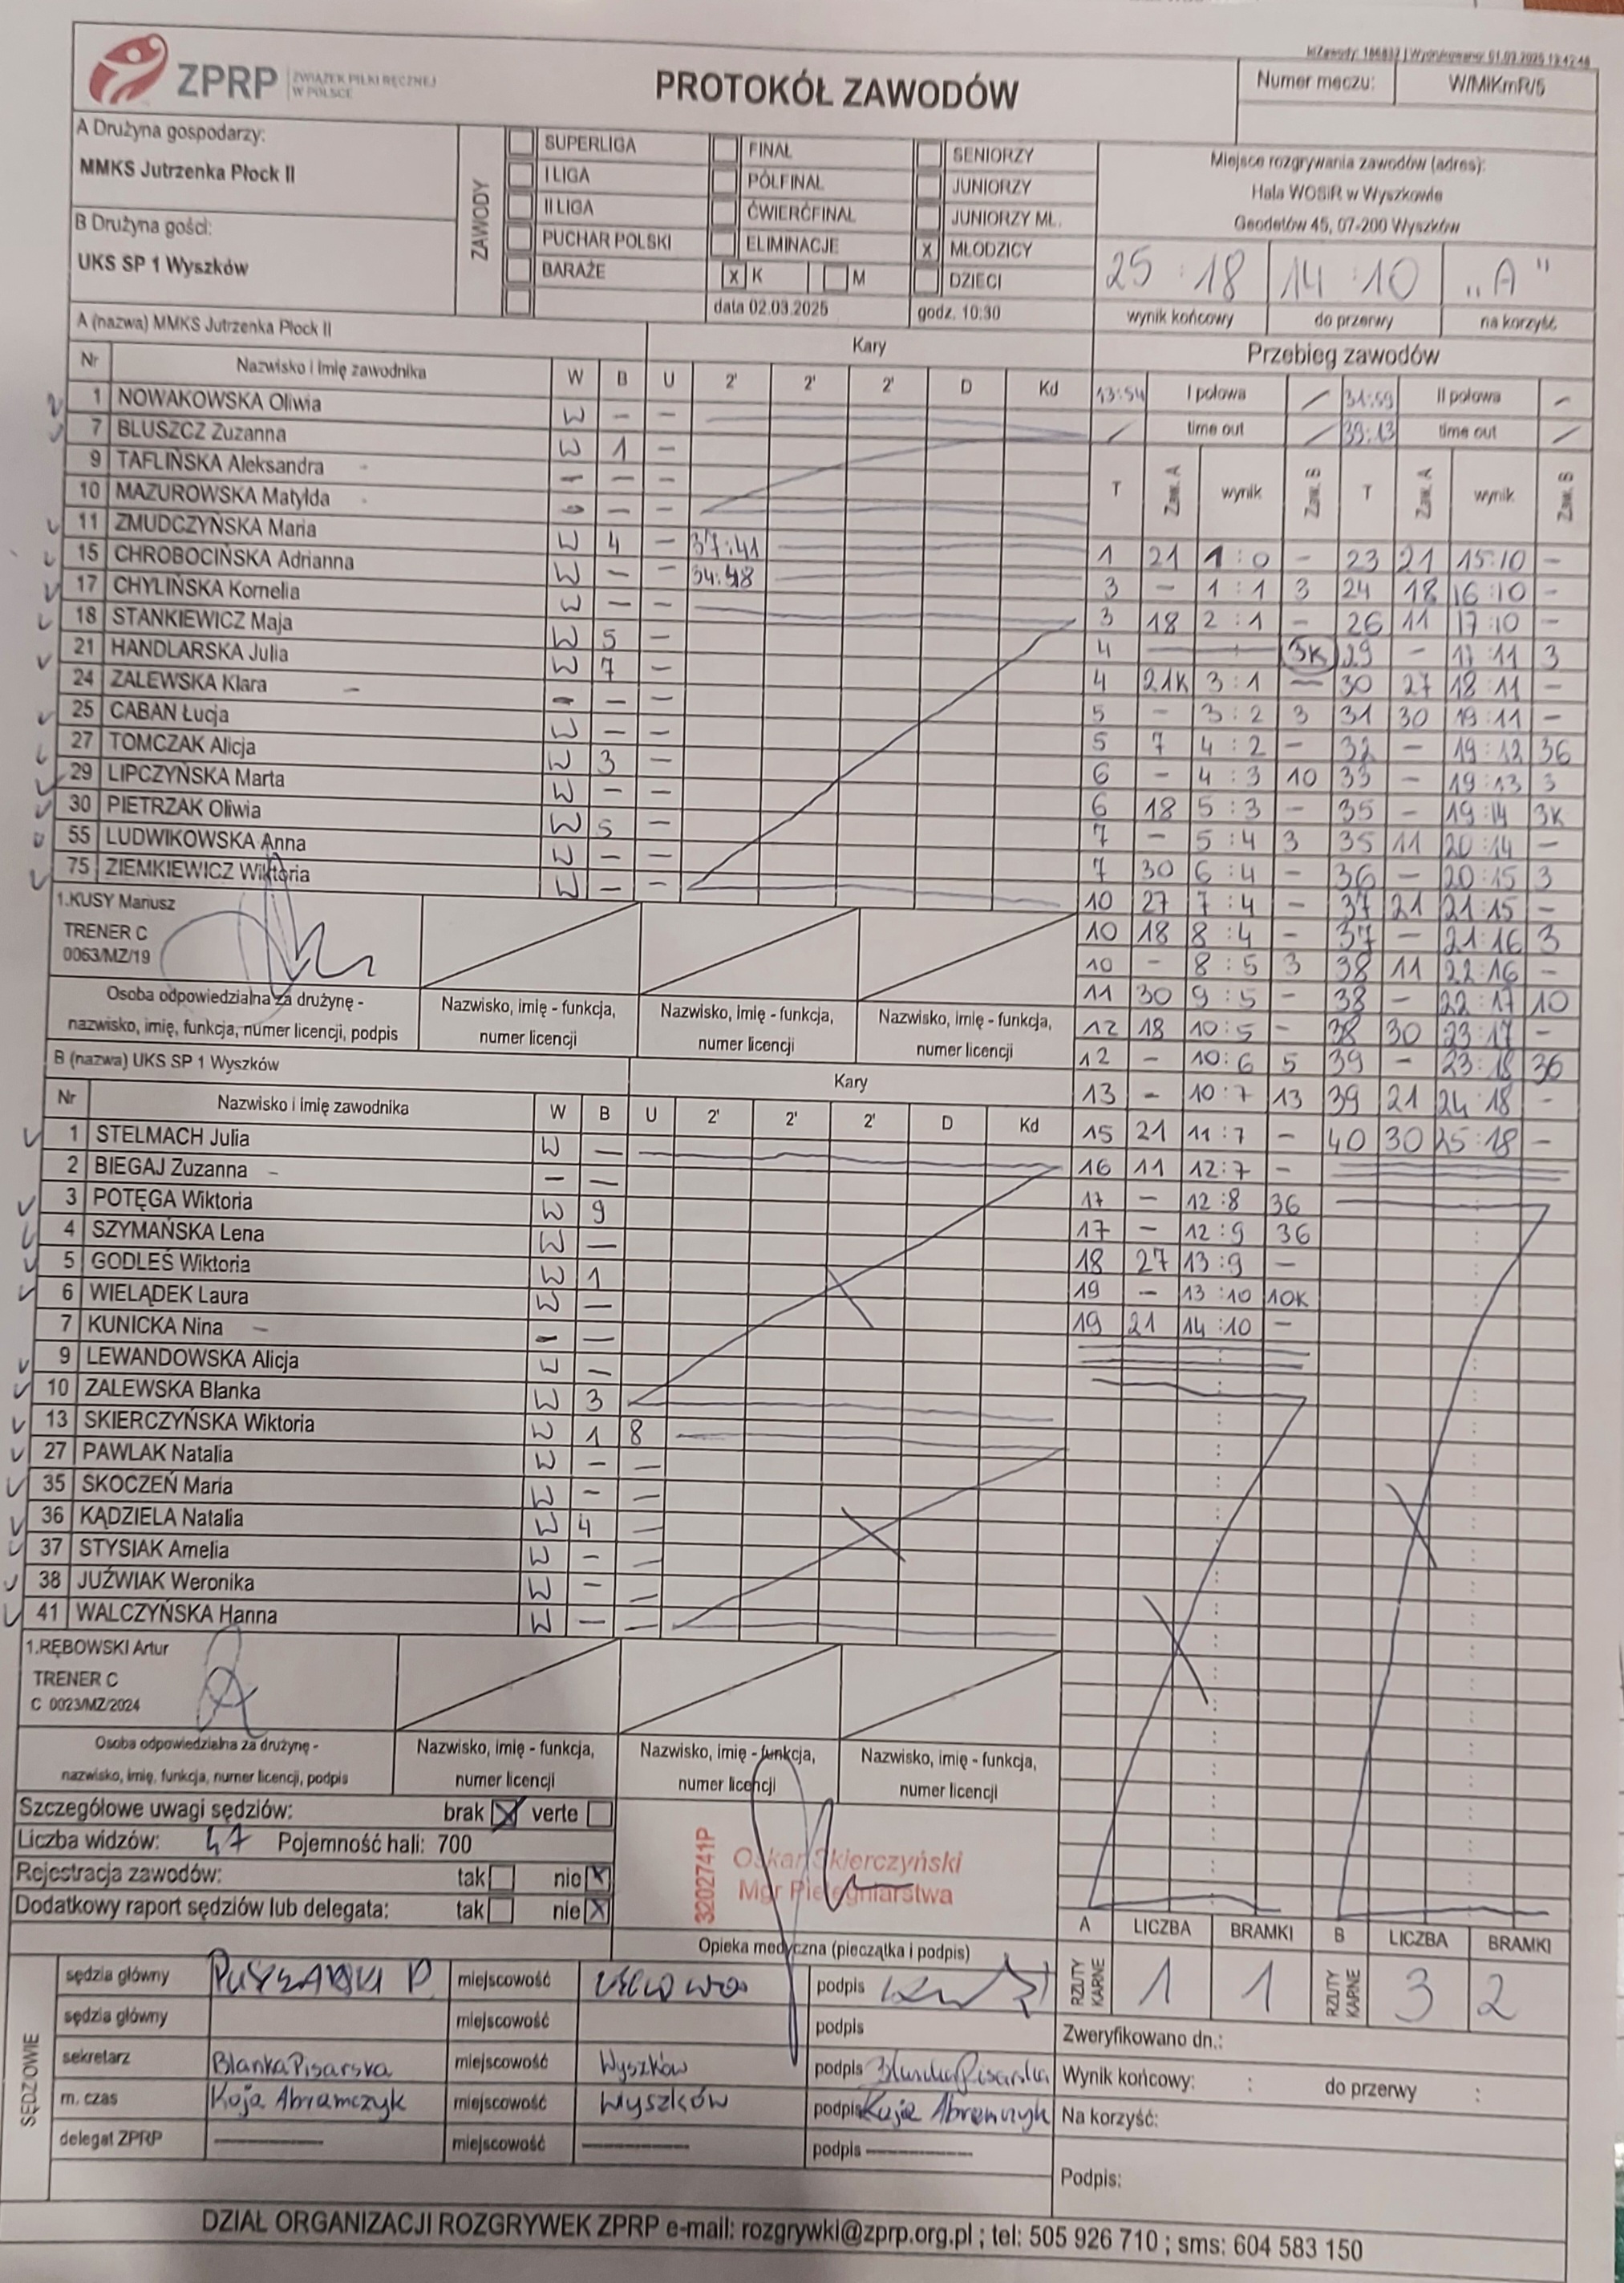 IdZawody: 186832 | Wydrukowano: 01.03.2025 13:42:46
ZPRP ZWIĄZEK PIŁKI RĘCZNEJ W POLSCE
PROTOKÓŁ ZAWODÓW
Numer meczu: W/MłKmR/5
A Drużyna gospodarzy:
MMKS Jutrzenka Płock II
B Drużyna gości:
UKS SP 1 Wyszków
ZAWODY
SUPERLIGA FINAŁ SENIORZY
I LIGA PÓŁFINAŁ JUNIORZY
II LIGA ĆWIERĆFINAŁ JUNIORZY MŁ.
PUCHAR POLSKI ELIMINACJE X MŁODZICY
BARAŻE X K M DZIECI
data 02.03.2025 godz. 10:30
Miejsce rozgrywania zawodów (adres):
Hala WOSiR w Wyszkowie
Geodetów 45, 07-200 Wyszków
25 : 18 14 : 10 „A"
wynik końcowy do przerwy na korzyść
A (nazwa) MMKS Jutrzenka Płock II Kary
Nr Nazwisko i imię zawodnika W B U 2' 2' 2' D Kd
1 NOWAKOWSKA Oliwia W - -
7 BLUSZCZ Zuzanna W 1 -
9 TAFLIŃSKA Aleksandra - - -
10 MAZUROWSKA Matylda - - -
11 ZMUDCZYŃSKA Maria W 4 - 37:41
15 CHROBOCIŃSKA Adrianna W - - 34:48
17 CHYLIŃSKA Kornelia W - -
18 STANKIEWICZ Maja W 5 -
21 HANDLARSKA Julia W 7 -
24 ZALEWSKA Klara - - -
25 CABAN Łucja W - -
27 TOMCZAK Alicja W 3 -
29 LIPCZYŃSKA Marta W - -
30 PIETRZAK Oliwia W 5 -
55 LUDWIKOWSKA Anna W - -
75 ZIEMKIEWICZ Wiktoria W - -
1.KUSY Mariusz
TRENER C
0063/MZ/19
Osoba odpowiedzialna za drużynę -
nazwisko, imię, funkcja, numer licencji, podpis
Nazwisko, imię - funkcja,
numer licencji
Nazwisko, imię - funkcja,
numer licencji
Nazwisko, imię - funkcja,
numer licencji
B (nazwa) UKS SP 1 Wyszków Kary
Nr Nazwisko i imię zawodnika W B U 2' 2' 2' D Kd
1 STELMACH Julia W -
2 BIEGAJ Zuzanna - -
3 POTĘGA Wiktoria W 9
4 SZYMAŃSKA Lena W -
5 GODLEŚ Wiktoria W 1
6 WIELĄDEK Laura W -
7 KUNICKA Nina - -
9 LEWANDOWSKA Alicja W -
10 ZALEWSKA Blanka W 3
13 SKIERCZYŃSKA Wiktoria W 1 8
27 PAWLAK Natalia W - -
35 SKOCZEŃ Maria W - -
36 KĄDZIELA Natalia W 4 -
37 STYSIAK Amelia W - -
38 JUŹWIAK Weronika W - -
41 WALCZYŃSKA Hanna W - -
1.RĘBOWSKI Artur
TRENER C
C 0023/MZ/2024
Osoba odpowiedzialna za drużynę -
nazwisko, imię, funkcja, numer licencji, podpis
Nazwisko, imię - funkcja,
numer licencji
Nazwisko, imię - funkcja,
numer licencji
Nazwisko, imię - funkcja,
numer licencji
Przebieg zawodów
13:54 I połowa / 31:59 II połowa -
/ time out / 39:13 time out /
T Zaw. A wynik Zaw. B T Zaw. A wynik Zaw. B
1 21 1 : 0 - 23 21 15:10 -
3 - 1 : 1 3 24 18 16:10 -
3 18 2 : 1 - 26 11 17:10 -
4 - : 3K 29 - 17:11 3
4 21K 3 : 1 - 30 27 18:11 -
5 - 3 : 2 3 31 30 19:11 -
5 7 4 : 2 - 32 - 19:12 36
6 - 4 : 3 10 33 - 19:13 3
6 18 5 : 3 - 35 - 19:14 3K
7 - 5 : 4 3 35 11 20:14 -
7 30 6 : 4 - 36 - 20:15 3
10 27 7 : 4 - 37 21 21:15 -
10 18 8 : 4 - 37 - 21:16 3
10 - 8 : 5 3 38 11 22:16 -
11 30 9 : 5 - 38 - 22:17 10
12 18 10 : 5 - 38 30 23:17 -
12 - 10 : 6 5 39 - 23:18 36
13 - 10 : 7 13 39 21 24:18 -
15 21 11 : 7 - 40 30 25:18 -
16 11 12:7 -
17 - 12 :8 36
17 - 12 :9 36
18 27 13 :9 -
19 - 13 :10 10K
19 21 14 :10 -
Szczegółowe uwagi sędziów: brak X verte
Liczba widzów: 47 Pojemność hali: 700
Rejestracja zawodów: tak nie X
Dodatkowy raport sędziów lub delegata: tak nie X
3202741P
Oskar Skierczyński
Mgr Pielęgniarstwa
Opieka medyczna (pieczątka i podpis)
A LICZBA BRAMKI B LICZBA BRAMKI
RZUTY KARNE 1 1 RZUTY KARNE 3 2
SĘDZIOWIE
sędzia główny miejscowość podpis
sędzia główny miejscowość podpis
sekretarz Blanka Pisarska miejscowość Wyszków podpis Blanka Pisarska
m. czas Kaja Abramczyk miejscowość Wyszków podpis Kaja Abramczyk
delegat ZPRP - miejscowość - podpis -
Zweryfikowano dn.:
Wynik końcowy: : do przerwy :
Na korzyść:
Podpis:
DZIAŁ ORGANIZACJI ROZGRYWEK ZPRP e-mail: rozgrywki@zprp.org.pl ; tel: 505 926 710 ; sms: 604 583 150